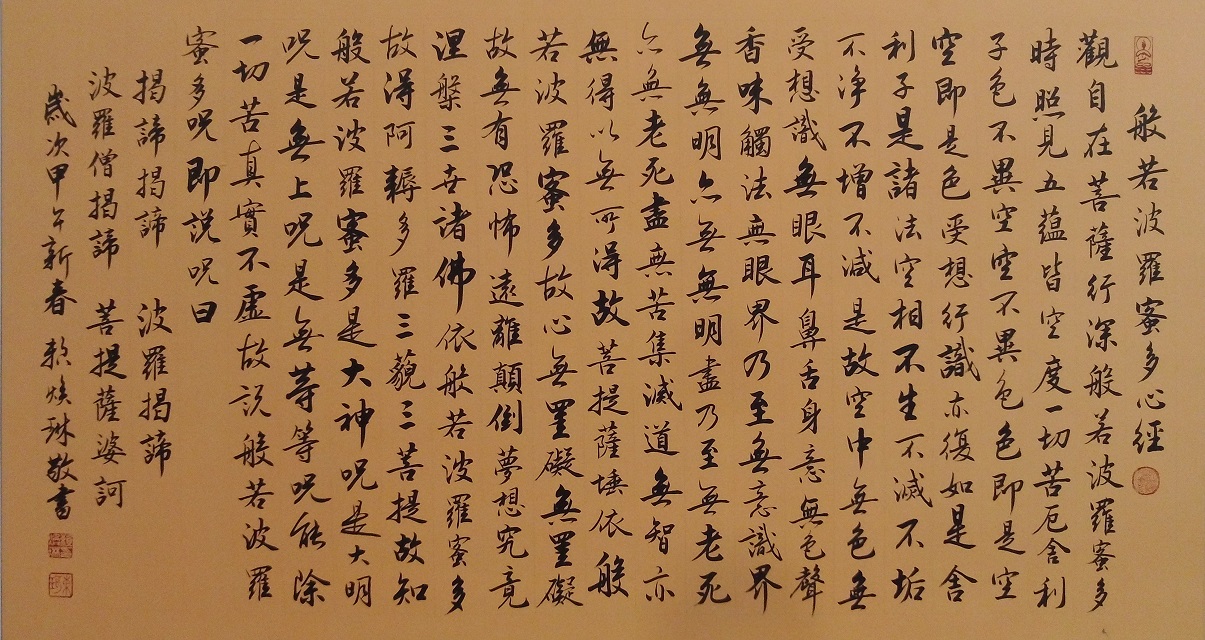 般若波羅蜜多心經
觀自在菩薩行深般若波羅蜜多
時照見五蘊皆空度一切苦厄舍利
子色不異空空不異色色即是空
空即是色受想行識亦復如是舍
利子是諸法空相不生不滅不垢
不淨不增不減是故空中無色無
受想識無眼耳鼻舌身意無色聲
香味觸法無眼界乃至無意識界
無無明亦無無明盡乃至無老死
亦無老死盡無苦集滅道無智亦
無得以無所得故菩提薩埵依般
若波羅蜜多故心無罣礙無罣礙
故無有恐怖遠離顛倒夢想究竟
涅槃三世諸佛依般若波羅蜜多
故得阿耨多羅三藐三菩提故知
般若波羅蜜多是大神呪是大明
呪是無上呪是無等等呪能除
一切苦真實不虛故說般若波羅
蜜多呪即說呪曰
揭諦揭諦 波羅揭諦
波羅僧揭諦 菩提薩婆訶
歲次甲午新春 煥琳敬書